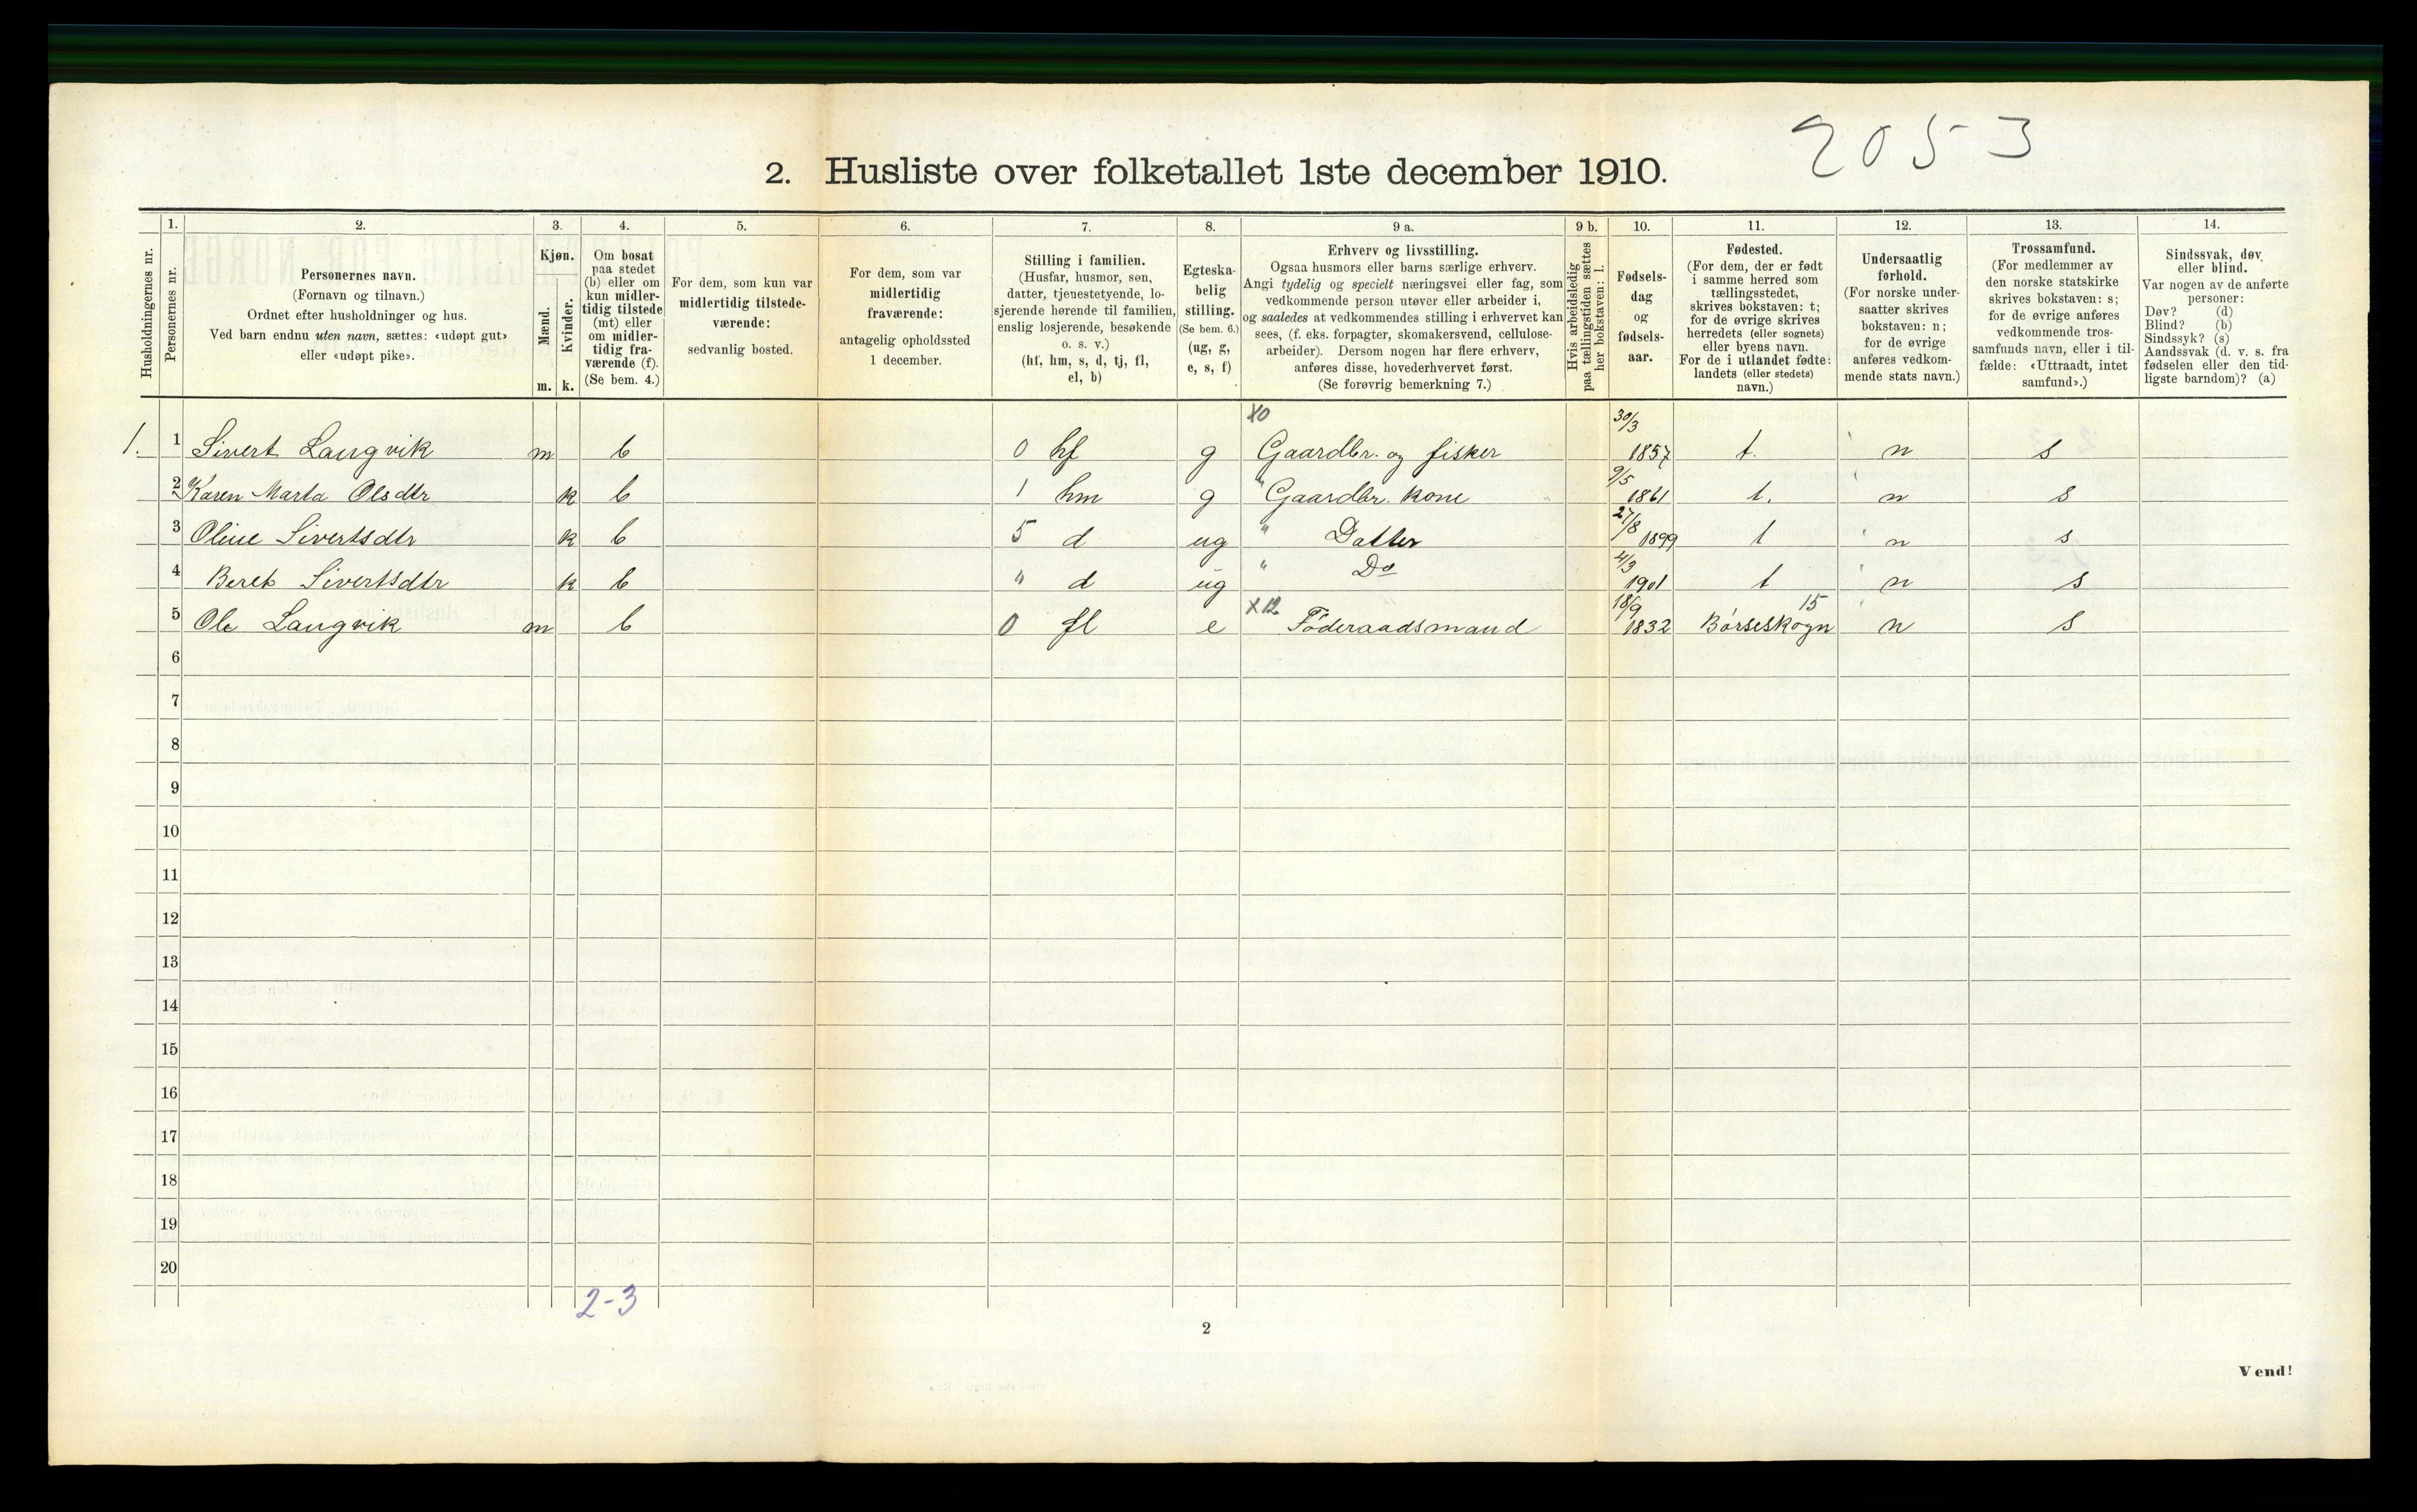 2053
2. Husliste over folketallet 1ste december 1910.
1. 2. 3. 4. 5. 6. 7. 8. 9 a. 9 b. 10. 11. 12. 13. 14.
Husholdningernes nr.
Personernes nr.
Personernes navn.
(Fornavn og tilnavn.)
Ordnet efter husholdninger og hus.
Ved barn endnu uten navn, sættes: «udøpt gut»
eller «udøpt pike».
Kjøn.
Mænd.
Kvinder.
m. k.
Om bosat
paa stedet
(b) eller om
kun midler-
tidig tilstede
(mt) eller
om midler-
tidig fra-
værende (f).
(Se bem. 4.)
For dem, som kun var
midlertidig tilstede-
værende:
sedvanlig bosted.
For dem, som var
midlertidig
fraværende:
antagelig opholdssted
1 december.
Stilling i familien.
(Husfar, husmor, søn,
datter, tjenestetyende, lo-
sjerende hørende til familien,
enslig losjerende, besøkende
o. s. v.)
(hf, hm, s, d, tj, fl,
el, b)
Egteska-
belig
stilling.
(Se bem. 6.)
(ug, g,
e, s, f)
Erhverv og livsstilling.
Ogsaa husmors eller barns særlige erhverv.
Angi tydelig og specielt næringsvei eller fag, som
vedkommende person utøver eller arbeider i,
og saaledes at vedkommendes stilling i erhvervet kan
sees, (f. eks. forpagter, skomakersvend, cellulose-
arbeider). Dersom nogen har flere erhverv,
anføres disse, hovederhvervet først.
(Se forøvrig bemerkning 7.)
Hvis arbeidsledig
paa tællingstiden sættes
her bokstaven: l.
Fødsels-
dag
og
fødsels-
aar.
Fødested.
(For dem, der er født
i samme herred som
tællingsstedet,
skrives bokstaven: t;
for de øvrige skrives
herredets (eller sognets)
eller byens navn.
For de i utlandet fødte:
landets (eller stedets)
navn.)
Undersaatlig
forhold.
(For norske under-
saatter skrives
bokstaven: n;
for de øvrige
anføres vedkom-
mende stats navn.)
Trossamfund.
(For medlemmer av
den norske statskirke
skrives bokstaven: s;
for de øvrige anføres
vedkommende tros-
samfunds navn, eller i til-
fælde: «Uttraadt, intet
samfund».)
Sindssvak, døv
eller blind.
Var nogen av de anførte
personer:
Døv? (d)
Blind? (b)
Sindssyk? (s)
Aandssvak (d. v. s. fra
fødselen eller den tid-
ligste barndom)? (a)
X0 30/3
1. 1 Sivert Langvik m b 0 hf g Gaardbr. og fisker 1857 t. n s
2 Karen Marta Olsdtr k b 1 hm g " Gaardbr. kone 9/5 1861 t. n s
3 Oline Sivertsdtr k b 5 d ug " Datter 27/8 1899 t n s
4 Beret Sivertsdtr k b " d ug " Do 4/3 1901 t n s
5 Ole Langvik m b 0 fl e X12 Føderaadsmand 18/9 1832 Børseskogn 15 n s
6
7
8
9
10
11
12
13
14
15
16
17
18
19
20
2-3
2
Vend!